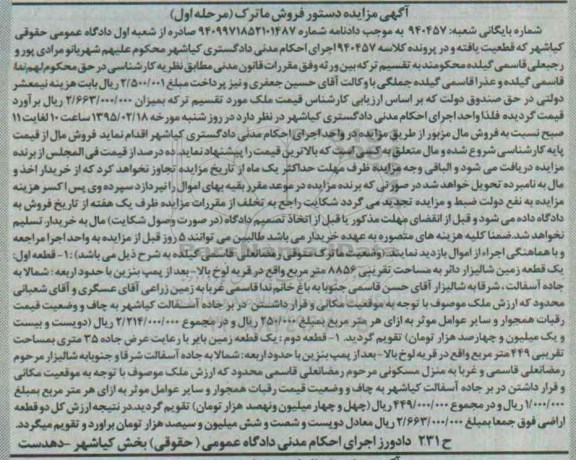 آگهی مزایده دستور فروش ماترک (مرحله اول)
شماره بایگانی شعبه: ۹۴۰۴۵۷ به موجب دادنامه شماره ۹۴۰۹۹۷۱۸۵۲۱۰۱۴۸۷ صادره از شعبه اول دادگاه عمومی حقوقی
کیاشهر که قطعیت یافته و در پرونده کلاسه ۹۴۰۴۵۷ اجرای احکام مدنی دادگستری کیاشهر محکوم علیهم شهربانو مرادی پور و
رجبعلی قاسمی گیلده محکومند به تقسیم ترکه بین ورثه وفق مقررات قانون مدنی مطابق نظریه کارشناسی در حق محکوم لهم نما
قاسمی گیلده و عذرا قاسمی گیلده جملگی با وکالت آقای حسین جعفری و نیز پرداخت مبلغ ۲/۵۰۰/۰۰۱ ریال بابت هزینه نیمعشر
دولتی در حق صندوق دولت که بر اساس ارزیابی کارشناس قیمت ملک مورد تقسیم ترکه بمیزان ۲/۶۶۳/۰۰۰/۰۰۰ ریال برآورد
قیمت گردیده فلذا واحد اجرای احکام مدنی دادگستری کیاشهر در نظر دارد در روز شنبه مورخه ۱۳۹۵/۰۲/۱۸ ساعت ۱۰ لغایت ۱۱
صبح نسبت به فروش مال مزبور از طریق مزایده در واحد اجرای احکام مدنی دادگستری کیاشهر اقدام نماید. فروش مال از قیمت
پایه کارشناسی شروع شده و مال متعلق به کسی است که بالاترین قیمت را پیشنهاد نماید. ده درصد از قیمت فی المجلس از برنده
مزایده دریافت می شود و الباقی وجه مزایده ظرف مهلت حداکثر یک ماه از تاریخ مزایده تجاوز نخواهد کرد که از خریدار اخذ و
مال به نامبرده تحویل خواهد شد در صورتی که برنده مزایده در موعد مقرر بقیه بهای اموال را نپردازد سپرده وی پس از کسر هزینه
مزایده به نفع دولت ضبط و مزایده تجدید می گردد شکایت راجع به تخلف از مقررات مزایده ظرف یک هفته از تاریخ فروش به
دادگاه داده می شود و قبل از انقضای مهلت مذکور یا قبل از اتخاذ تصمیم دادگاه (در صورت وصول شکایت) مال به خریدار تسلیم
نخواهد شد. ضمنا کلیه هزینه های متصوره به عهده خریدار می باشد طالبین می توانند ۵ روز قبل از مزایده به واحد اجرا مراجعه
و با هماهنگی اجراء از اموال بازدید نمایند. (وضعیت ماترک متوفی رمضانعلی قاسمی گیلده به شرح ذیل می باشد): ۱- قطعه اول:
یک قطعه زمین شالیزار دائر به مساحت تقریبی ۸۸۵۶ متر مربع واقع در قریه لوخ بالا - بعد از پمپ بنزین با حدود اربعه: شمالا به
جاده آسفالت، شرقا به شالیزار آقای حسن قاسمی جنوبا به باغ خانم ندا قاسمی غربا به زمین زراعی آقای عسگری و آقای شعبانی
محدود که ارزش ملک موصوف با توجه به موقعیت مکانی و قرار داشتن در بر جاده آسفالت کیاشهر به چاف و وضعیت قیمت
رقبات همجوار و سایر عوامل موثر به ازای هر متر مربع بمبلغ ۲۵۰/۰۰۰ ریال و در مجموع ۲/۲۱۴/۰۰۰/۰۰۰ ریال (دویست و بیست
و یک میلیون و چهارصد هزار تومان) تقویم گردید. ۱- قطعه دوم: یک قطعه زمین بایر با رعایت عرض جاده ۳۵ متری بمساحت
تقریبی ۴۴۹ متر مربع واقع در قریه لوخ بالا - بعد از پمپ بنزین با حدود اربعه: شمالا به جاده آسفالت شرقا و جنوبا به شالیزار مرحوم
رمضانعلی قاسمی و غربا به منزل مسکونی مرحوم رمضانعلی قاسمی محدود که ارزش ملک موصوف با توجه به موقعیت مکانی
و قرار داشتن در بر جاده آسفالت کیاشهر به چاف و وضعیت قیمت رقبات همجوار و سایر عوامل موثر به ازای هر متر مربع بمبلغ
۱/۰۰۰/۰۰۰ ریال و در مجموع ۴۴۹/۰۰۰/۰۰۰ ریال (چهل و چهار میلیون ونهصد هزار تومان) تقویم گردید. در نتیجه ارزش کل دو قطعه
اراضی فوق جمعا بمبلغ ۲/۶۶۳/۰۰۰/۰۰۰ ریال معادل دویست و شصت و شش میلیون و سیصد هزار تومان برآورد و تقویم میگردد.
ح ۲۳۱ دادورز اجرای احکام مدنی دادگاه عمومی (حقوقی) بخش کیاشهر - دهدست